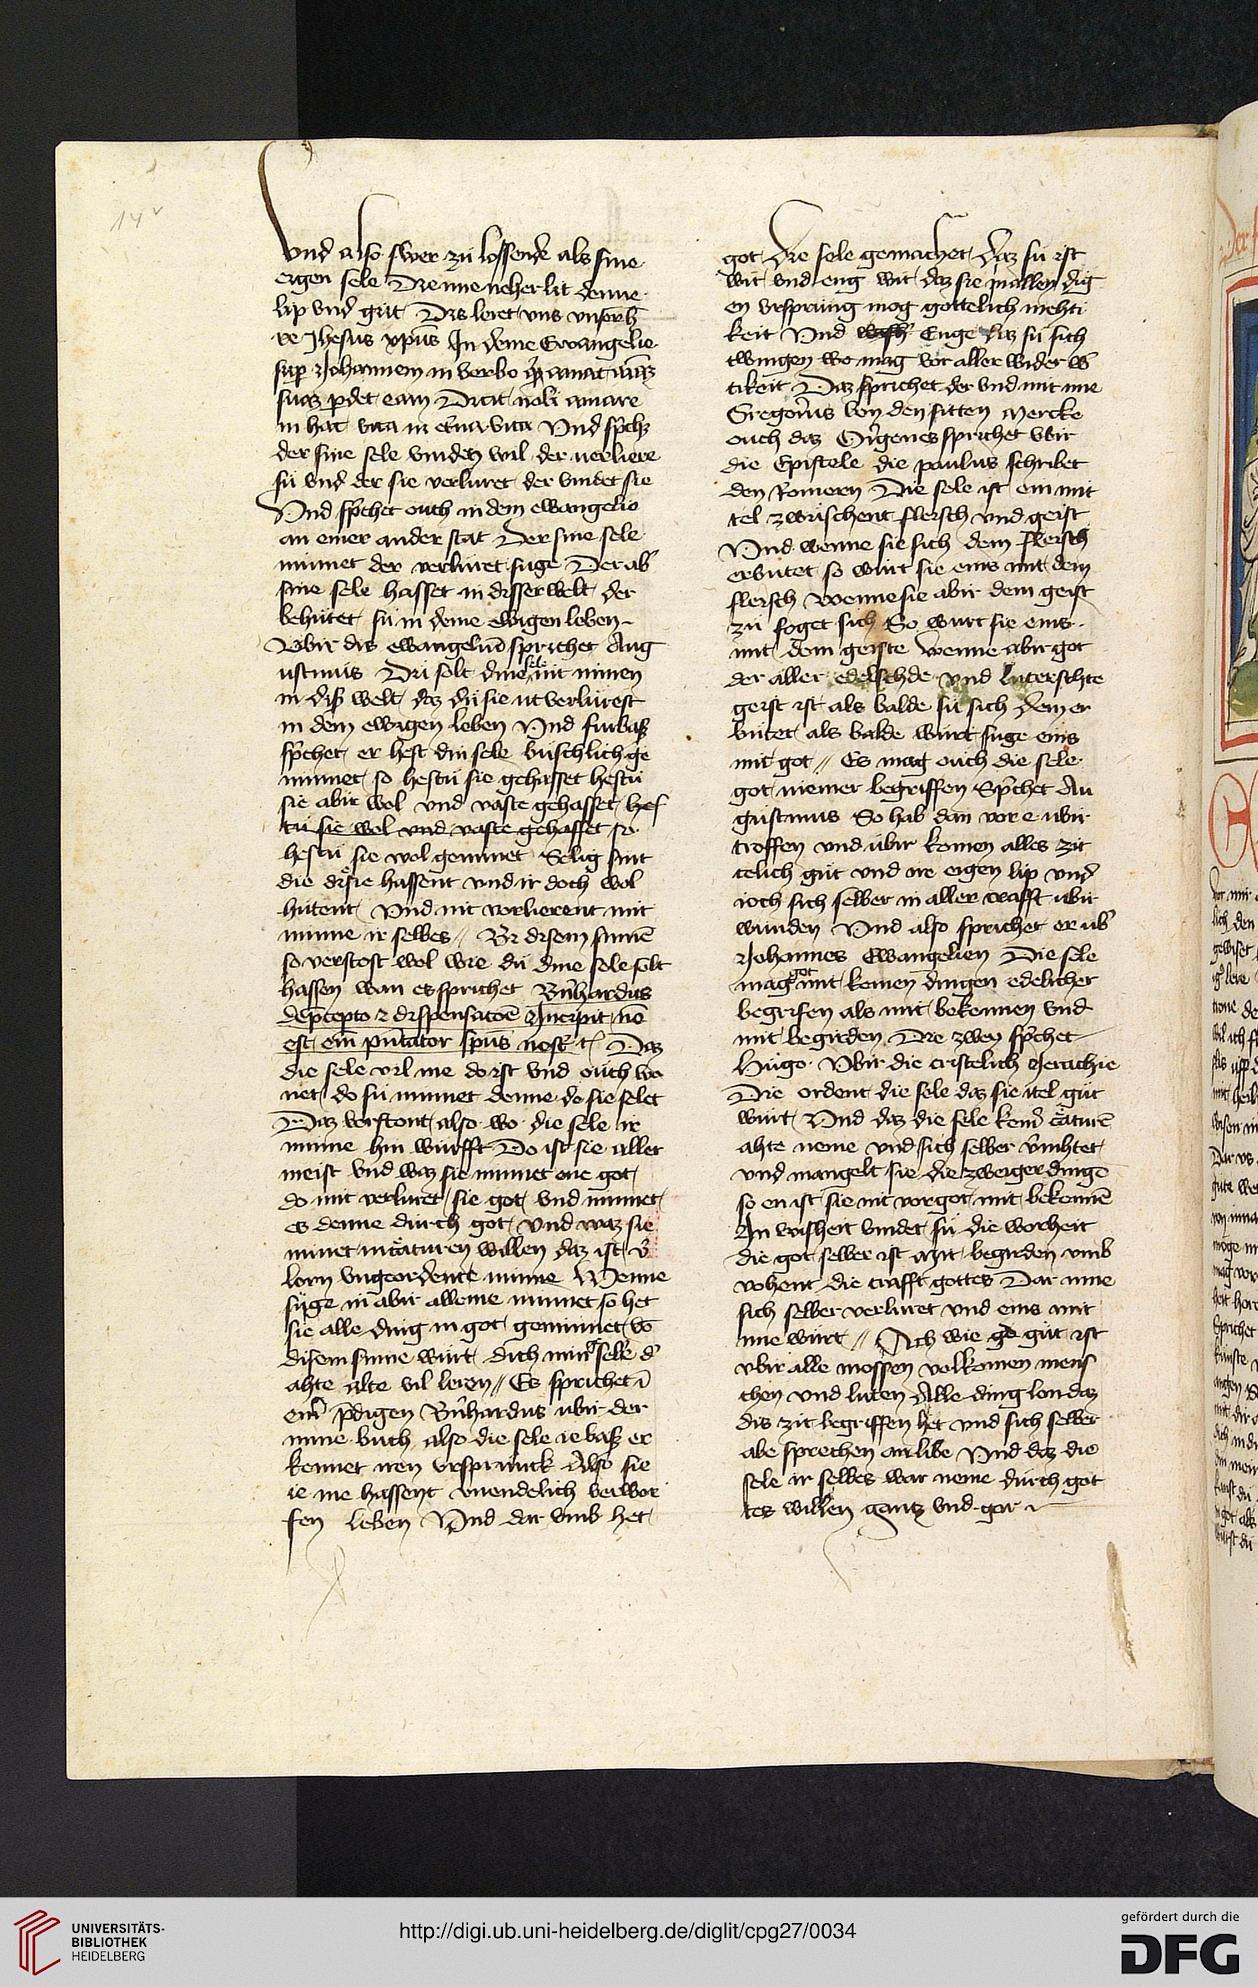 14v
Vnd also swer zü lossende als sine
eigen sele Die ime neher lit denne
lip vnd güt Dis leret vns vnser h̄
re Jhesus xp̄us In deme Ewangelie
sup Johannem in verbo q̄ amat aīaʒ
suaʒ ꝑdet eam Dicit noli amare
in hac vita in et̄na vita Vnd sp̄chʒ
der sine sele vinden wil der uerliere
sü vnd der sie verlüret der vindet sie
Vnd sp̄chet ouch in dem ewangelio
an einer ander stat Der sine sele
minnet der verlüret suge Der ab̾
sine sele hasset in disser welt der
behütet sü in deme ewigen leben
Vbir dis ewangeliū sprichet Aug
ustinus Du solt dine sele nit minen
in diß welt daz dü sie üt verlürest
in dem ewigen leben Vnd fürbaß
sp̄chet er hest din sele büschlich ge
minnet so hestü sie gehasset hestü
sie abir wol vnd vaste gehasset hes
tü sie wol vnd vaste gehasset so
hestü sie wol geminet Selig sint
die die sie hassent vnd ir doch wol
hütent Vnd nit verlierent mit
minne ir selbes // Vz disem sinnē
so verstost wol wie dü dine sele solt
hassen wan es sprichet Bn̄hardus
de p̄cepto ⁊ dispensatoē Incipit nō
est em̄ pn̄tator sp̄us nost̄ ⁊c Daz
die sele vil me do ist vnd ouch wo
net do sü minnet denne do sie selet
Daz verstont also wo die sele ir
minne hin würfft Do ist sie aller
meist vnd waz sie minnet one got
do mit verlüret sie got vnd minnet
es denne dürch got vnd waz sie
minet in c̄aturen willen daz ist v̄
lorn vngeordente minne Wenne
suge in abir alleine minnet so het
sie alle ding in got geminnet vō
disem sinne würt dich min selbe d̾
ahte alte vil leren // Es sprichet ī
eim̄ p̄digen Bn̄hardus ubir der
mine büch also die sele ie baß er
kennet iren vrsprunck Also sie
ie me hassent vnendelich verwor
fen leben Vnd dar vmb het
got die sele gemachet daz sü ist
wit vnd eng wit daz sie in allen dīg
en vrsprüng mog gottelich mehti
keit Vnd Enge daz sü sich
twingen wo mag vor aller wider w̄
tikeit Daz sprichet der vnd mit me
Gregorius von den sitten Mercke
ouch daz Origenes sprichet vbir
die Epistele die paulus schribet
den Romern Die sele ist ein mit
tel zwüschent fleisch vnd geist
Vnd wenne sie sich dem fleisch
erbütet so würt sie eins mit dem
fleisch Wenne sie abir dem geist
zü foget sich So würt sie eins
mit dem geiste Wenne abir got
der aller edelschde vnd luterschte
geist ist als balde sü sich dem er
bütet als balde würt suge eins
mit got // Es mag ouch die sele
got niemer begriffen Sp̄chet Au
güstinus So hab dan vor e ubir
troffen vnd übir komen alles zit
telich güt vnd ire eigen lip vnd
ioch sich selber in aller crafft ubir
wunden Vnd also sprichet er ub̾
Johannes Ewangelien Die sele
mag got mit keinen dingen edelicher
begriffen als mit bekennen vnd
mit begirden Die zwey sp̄chet
Hügo Vbir die cristelich Jerachie
Die ordent die sele daz sie itel güt
würt Vnd daz die sele kein̄ c̄aturē
ahte neme vnd sich selber v̄nihtet
vnd mangelt sie die zweiger dingē
so en ist sie nit vor got mit bekennē
An wisheit vindet sü die worheit
die got selber ist Mit begirden vmb
vohent die crafft gottes Dar inne
sich selber verlüret vnd eins mit
ime würt // Ach wie güt ist
vbir alle mossen volkomen mens
chen vnd luten Alle ding lon daz
dis zit begriffen het vnd sich selber
abe sprechen an libe Vnd daz die
sele ir selbes war neme dürch got
tes willen gantz vnd gar
UNIVERSITÄTS-
BIBLIOTHEK
HEIDELBERG
http://digi.ub.uni-heidelberg.de/diglit/cpg27/0034
gefördert durch die
DFG